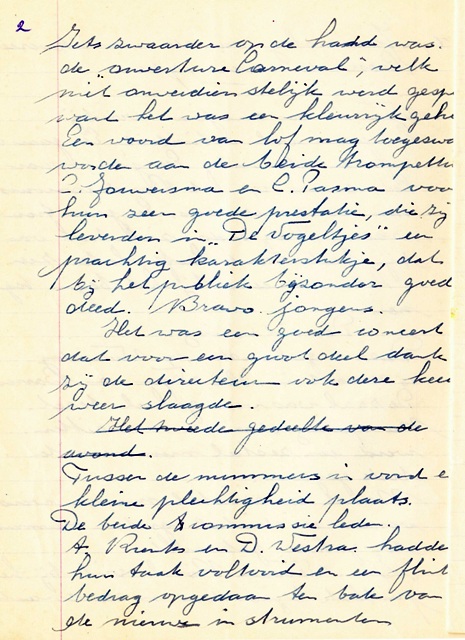 2
Iets zwaarder op de hand was.
de "ouverture Carneval", welk
niet onverdienstelijk werd gesp
want het was een kleurrijk gehe
Een woord van lof mag toegeswa
worde aan de beide trompette
C. Jouwersma en C. Pasma voo
hun zeer goede prestatie, die zij
leverden in "De Vogeltjes" een
prachtig karakterstukje, dat
bij het publiek bijzonder goed
deed. Bravo jongens.
Het was een goed concert
dat voor een groot deel dank
zij de directeur ook deze keer
weer slaagde.
Het tweede gedeelte van de
avond.
Tussen de nummers in vond e
kleine plechtigheid plaats.
De beide kommissie leden.
A. Rienks en D. Westra hadde
hun taak voltooid en een flink
bedrag opgedaan ten bate van
de nieuwe instrumenten